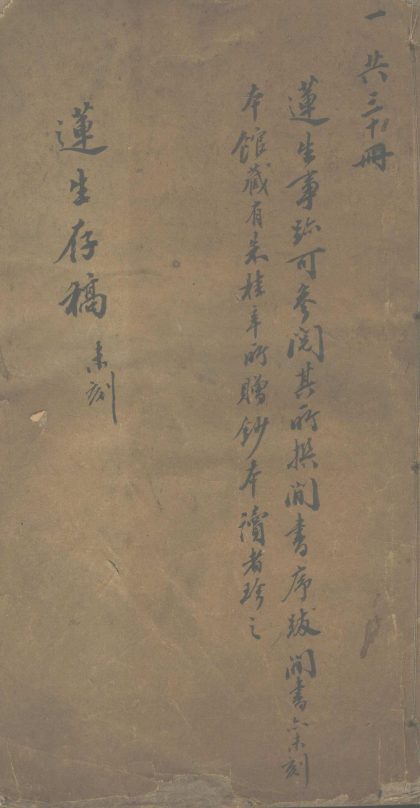 一 共三十冊
蓮生事跡可參閱其所撰閒書序跋閒書亦未刻
本館藏有朱桂辛所贈鈔本讀者珍之
蓮生存稿 未刻